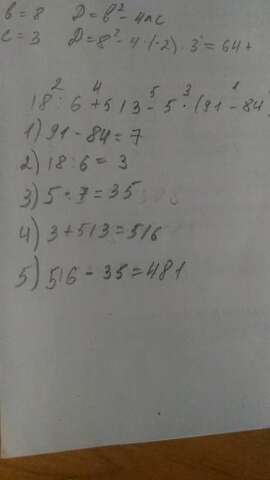 b = 8 D = b² - 4ac
c = 3 D = 8² - 4 · (-2) · 3 = 64 +
2 4 5 3 1
18 : 6 + 513 - 5 · (91 - 84)
1) 91 - 84 = 7
2) 18 : 6 = 3
3) 5 · 7 = 35
4) 3 + 513 = 516
5) 516 - 35 = 481